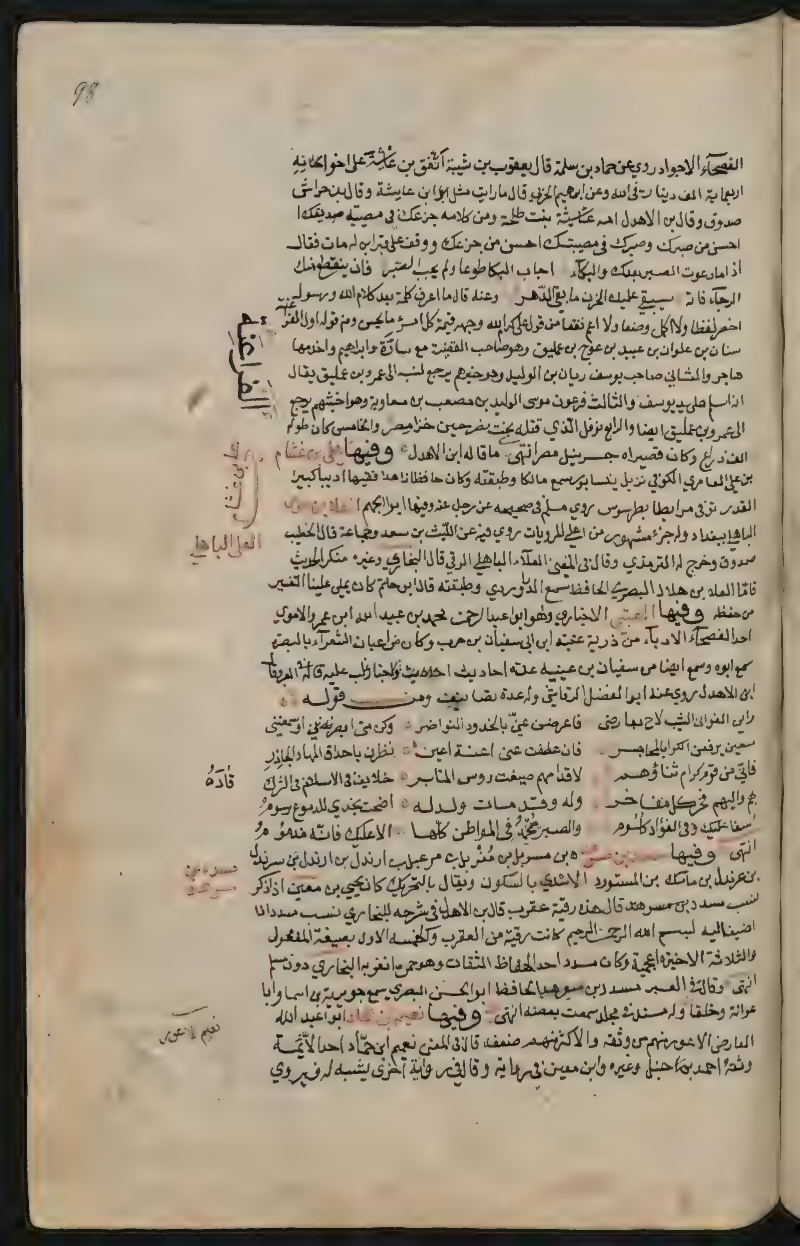 98
الفصحآء الاجواد روي عن حماد بن سلمة قال يعقوب بن شيبة انفق بن عائشة على اخوانه
اربعماية الف دينار في الله وعن ابراهيم الحربي قال ما رايت مثل ابن عايشة وقال بن خراش
صدوق وقال بن الاهدل امه عايشة بنت طلحة ومن كلامه جزعك في مصيبة صديقك
احسن من صبرك وصبرك في مصيبتك احسن من جزعك ووقف على قبر ابن له مات فقال
اذا ما دعوت الصبر بعدك والبكآء اجاب البكا طوعا ولم يجب الصبر فان ينقطع منك
الرجآء فانه سيبقى عليك الحزن ما بقي الدهر وعنه قال ما اعرف كلمة بعد كلام الله ورسوله
اخصر لفظا ولا اكمل وصفا ولا اعم نفعا من قول علي كرم الله وجهه قيمة كل امرئ ما يحسن ومن قوله اول الفراعنة
سنان بن علوان بن عبيد بن عوج بن عمليق وهو صاحب القصة مع سارة وابراهيم واخدمها
هاجر والثاني صاحب يوسف ريان بن الوليد وهو خيرهم يرجع نسبه الى عمرو بن عمليق يقال
انه اسلم على يد يوسف والثالث فرعون موسى الوليد بن مصعب بن معاوية وهو اخبثهم يرجع
الى عمرو بن عمليق ايضا والرابع نوفل الذي قتله بخت نصر حين غزا مصر والخامس كان طوله
الف ذراع وكان قصيراه جسر نيل مصر انتهى ما قاله ابن الاهدل وفيها علي بن عثام
بن علي العامري الكوفي نزيل نيسابور سمع مالكا وطبقته وكان حافظا زاهدا فقيها اديبا كبير
القدر توفي مرابطا بطرسوس روي مسلم في صحيحه عن رجل عنه وفيها ابو الجهم العلا بن موسى
الباهلي ببغداد وله جزء مشهور من اعلى المرويات روي فيه عن الليث بن سعد وجماعة قال الخطيب
صدوق وخرج له الترمذي وقال في المغني العلآء الباهلي الرقي قال البخاري وغيره منكر الحديث
من حفظه وفيها العتبي الاخباري وهو ابو عبد الرحمن محمد بن عبيد الله ابن عمرو الاموي
احد الفصحآء الادبآء من ذرية عتبة ابن ابي سفيان بن حرب وكان من اعيان الشعرآء بالبصرة
سمع ابوه وسمع ايضا من سفيان بن عيينة عدة احاديث
ابن الاهدل روي عنه ابو الفضل الرقاشي وله عدة تصانيف ومن قوله
راين الغواني الشيب لاح بعارضي فاعرضن عني بالخدود النواضر وكن متى ابصرنني او سمعنني
سعين يرقعن الكوا بالمحاجر فان عطفت عني اعنة اعين نظرن باحداق المها والجاذر
فاني من قوم كرام ثناؤهم لاقدامهم صيغت روس المنابر خلايف في الاسلام في الشرك قادة
بهم واليهم فخر كل مفاخر وله وقد مات ولد له اضحت بخدي للدموع رسوم
اسفا عليك وفي الفؤاد كلوم والصبر يحمد في المواطن كلها الا عليك فانه مذموم
انتهى وفيها مسدد بن مسرهد بن مسربل بن مغربل بن مرعبل بن ارندل بن سرندل
بن عرندل بن ماسك بن المستورد الاسدي بالسكون ويقال بالتحريك كان يحيى بن معين اذا ذكر
نسب مسدد بن مسرهد قال هذه رقية عقرب قال بن الاهدل في شرحه للبخاري نسب مسدد اذا
اضيفا اليه بسم الله الرحمن الرحيم كانت رقية من العقرب والخمسه الاول بصيغة المفعول
والثلاثة الاخيرة اعجمية وكان مسدد احد الحفاظ الثقات وهو ممن انفرد به البخاري دون مسلم
انتهى وقال في العبر مسدد بن مسرهد الحافظ ابو الحسن البصري سمع جويرية بن اسما وابا
عوانة وخلقا وله مسند في مجلد سمعت بعضه انتهى وفيها نعيم بن حماد ابو عبد الله
الفارضي الاعور منهم من وثقه والاكثر منهم ضعفه قال في المغني نعيم ابن حماد احد الائمة
وثقه احمد بن حنبل وغيره وابن معين في رواية وقال في رواية اخرى يشبه له فيروي
الفراعنة
علي بن عثام
العلا الباهلي
قادة
نعيم الاعور